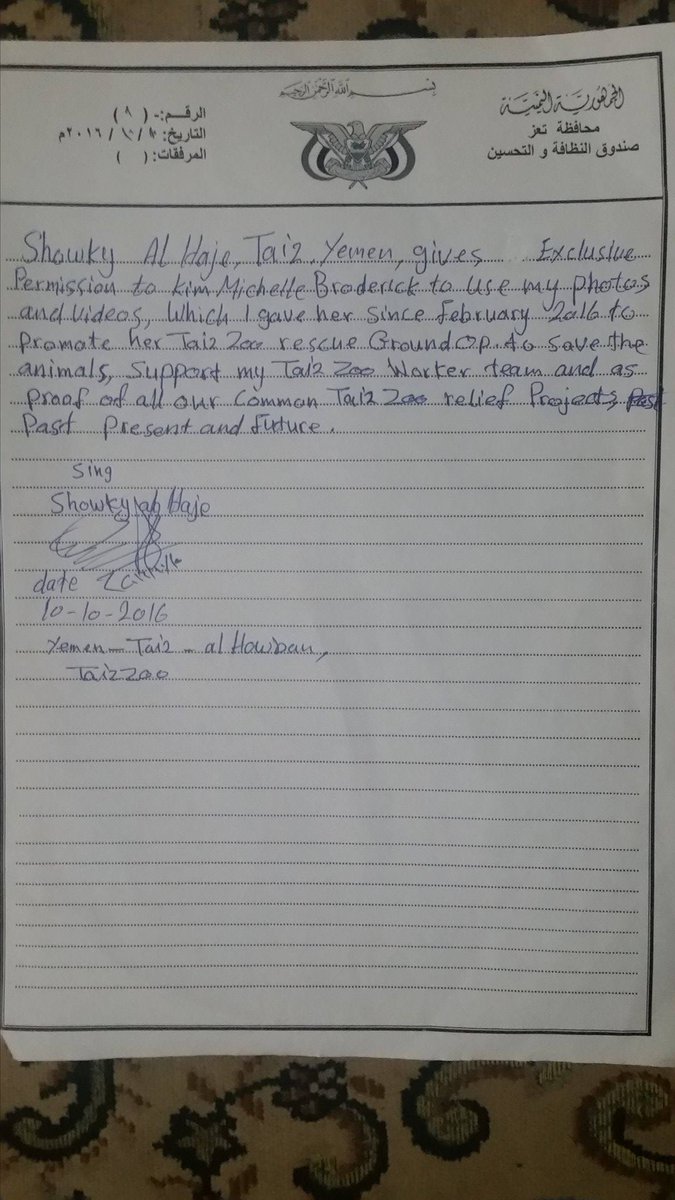 بسم الله الرحمن الرحيم
الجمهورية اليمنية
محافظة تعز
صندوق النظافة و التحسين
الرقم:- ( ٨ )
التاريخ: ١٠ / ١٠ / ٢٠١٦م
المرفقات: ( )
Showky Al Haje, Taiz, Yemen, gives Exclusive
Permission to Kim Michelle Broderick to use my photos
and videos, which I gave her since February 2016 to
promate her Taiz Zoo rescue Ground op. to save the
animals, support my Taiz Zoo worker team and as
proof of all our common Taiz Zoo relief Projects,
Past Present and Future.
Sing
Showky al Haje
date
10-10-2016
Yemen - Taiz - al Howban,
Taiz Zoo